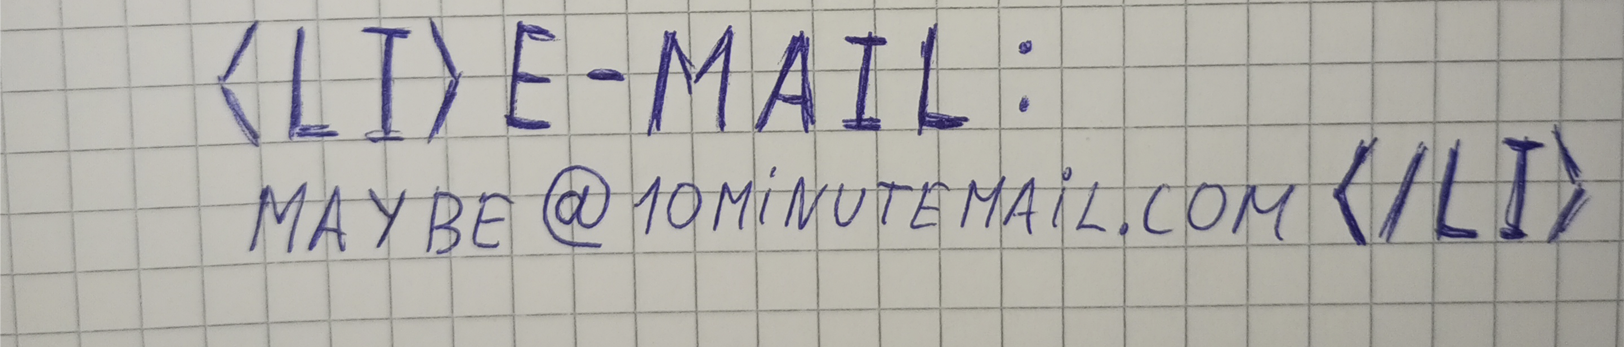 <LI>E-MAIL:
MAYBE@10MiNUTEMAiL.COM</LI>